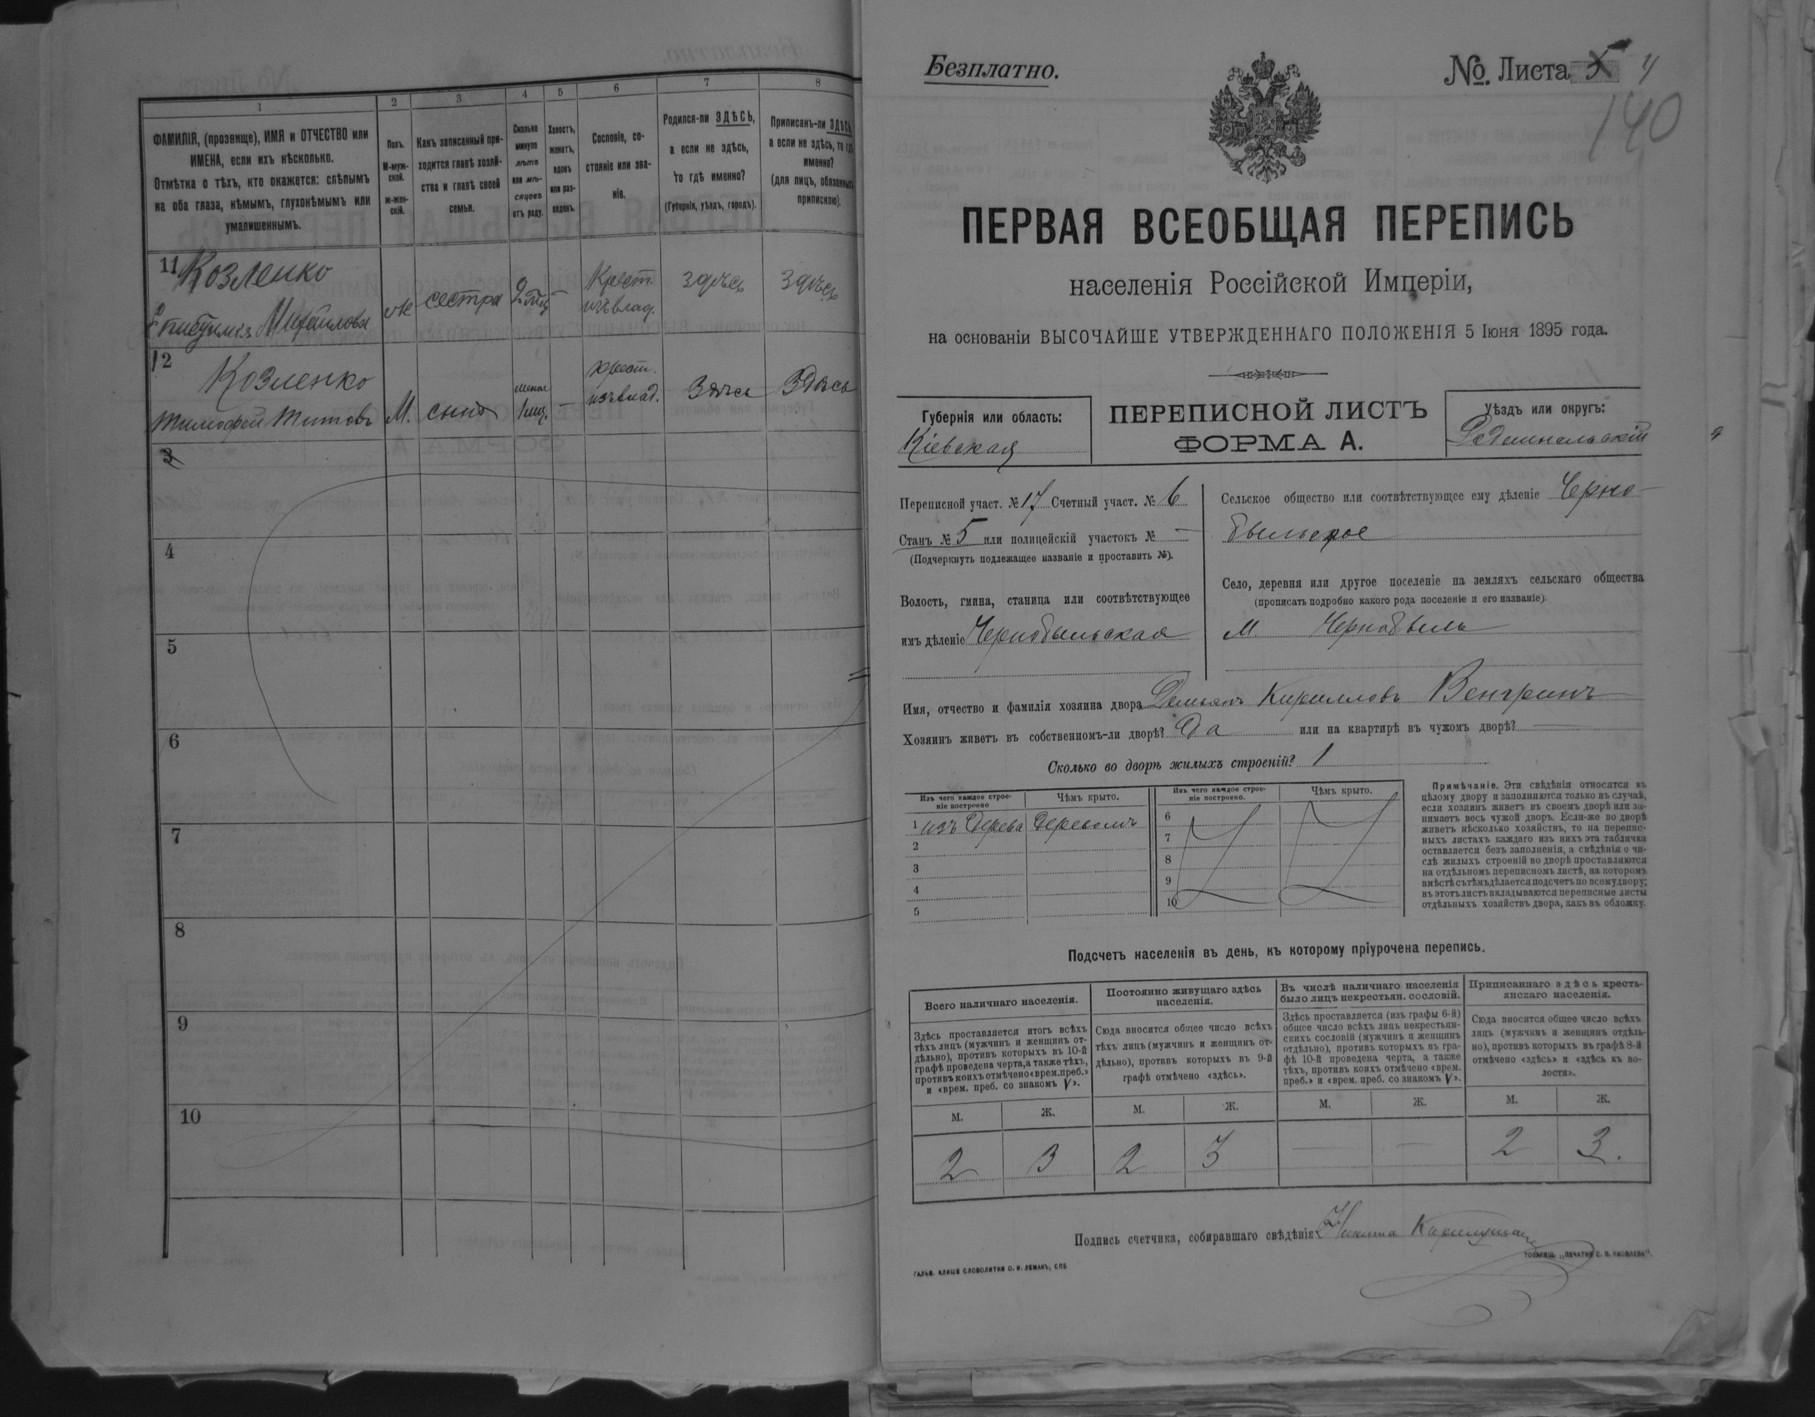 1
2
3
4
5
6
7
8
ФАМИЛІЯ, (прозвище), ИМЯ и ОТЧЕСТВО или
ИМЕНА, если ихъ нѣсколько.
Отмѣтка о тѣхъ, кто окажется: слѣпымъ
на оба глаза, нѣмымъ, глухонѣмымъ или
умалишеннымъ.
Полъ.
М-муж-
ской.
ж-жен-
скій.
Какъ записанный при-
ходится главѣ хозяй-
ства и главѣ своей
семьи.
Сколько
минуло
лѣтъ
или мѣ-
сяцевъ
отъ роду.
Холостъ,
женатъ,
вдовъ
или раз-
веденъ.
Сословіе, со-
стояніе или зва-
ніе.
Родился-ли ЗДѢСЬ,
а если не здѣсь,
то гдѣ именно?
(Губернія, уѣздъ, городъ).
Приписанъ-ли ЗДѢСЬ,
а если не здѣсь, то гдѣ
именно?
(для лицъ, обязанныхъ
припискою).
11 Козленко
Михайлова
ж сестра
Крест.
изъ влад.
здѣсь здѣсь
12
Козленко
Тимофей Титовъ
М. сынъ
менѣе
1 мѣц. —
крест.
изъ влад.
Здѣсь Здѣсь
3
4
5
6
7
8
9
10
Безплатно.
№ Листа 5 4
140
ПЕРВАЯ ВСЕОБЩАЯ ПЕРЕПИСЬ
населенія Россійской Имперіи,
на основаніи ВЫСОЧАЙШЕ УТВЕРЖДЕННАГО ПОЛОЖЕНІЯ 5 Іюня 1895 года.
Губернія или область:
Кіевская
ПЕРЕПИСНОЙ ЛИСТЪ
ФОРМА А.
Уѣздъ или округъ:
Радомысльскій
Переписной участ. № 17 Счетный участ. № 6
Станъ № 5 или полицейскій участокъ № —
(Подчеркнуть подлежащее названіе и проставить №).
Волость, гмина, станица или соотвѣтствующее
имъ дѣленіе Чернобыльская
Сельское общество или соотвѣтствующее ему дѣленіе Черно-
быльское
Село, деревня или другое поселеніе на земляхъ сельскаго общества
(прописать подробно какого рода поселеніе и его названіе)
М. Чернобыль
Имя, отчество и фамилія хозяина двора Демьянъ Кирилловъ Венгринъ
Хозяинъ живетъ въ собственномъ-ли дворѣ? Да или на квартирѣ въ чужомъ дворѣ? —
Сколько во дворѣ жилыхъ строеній? 1
Изъ чего каждое строе-
ніе построено
Чѣмъ крыто.
Изъ чего каждое строе-
ніе построено.
Чѣмъ крыто.
1 изъ Дерева Деревомъ
2
3
4
5
6
7
8
9
10
Примѣчаніе. Эти свѣдѣнія относятся къ
цѣлому двору и заполняются только въ случаѣ,
если хозяинъ живетъ въ своемъ дворѣ или за-
нимаетъ весь чужой дворъ. Если-же во дворѣ
живетъ нѣсколько хозяйствъ, то на перепис-
ныхъ листахъ каждаго изъ нихъ эта табличка
оставляется безъ заполненія, а свѣдѣнія о чи-
слѣ жилыхъ строеній во дворѣ проставляются
на отдѣльномъ переписномъ листѣ, на которомъ
вмѣстѣ съ тѣмъ дѣлается подсчетъ по всему двору;
въ этотъ листъ вкладываются переписные листы
отдѣльныхъ хозяйствъ двора, какъ въ обложку.
Подсчетъ населенія въ день, къ которому пріурочена перепись.
Всего наличнаго населенія.
Здѣсь проставляется итогъ всѣхъ
тѣхъ лицъ (мужчинъ и женщинъ от-
дѣльно), противъ которыхъ въ 10-й
графѣ проведена черта, а также тѣхъ,
противъ коихъ отмѣчено «врем. преб.»
и «врем. преб. со знакомъ V».
Постоянно живущаго здѣсь
населенія.
Сюда вносится общее число всѣхъ
тѣхъ лицъ (мужчинъ и женщинъ от-
дѣльно), противъ которыхъ въ 9-й
графѣ отмѣчено «здѣсь».
Въ числѣ наличнаго населенія
было лицъ некрестьян. сословій.
Здѣсь проставляется (изъ графы 6-й)
общее число всѣхъ лицъ некрестьян-
скихъ сословій (мужчинъ и женщинъ
отдѣльно), противъ которыхъ въ гра-
фѣ 10-й проведена черта, а также
тѣхъ, противъ коихъ отмѣчено «врем.
преб.» и «врем. преб. со знакомъ V».
Приписаннаго здѣсь кресть-
янскаго населенія.
Сюда вносится общее число всѣхъ
лицъ (мужчинъ и женщинъ отдѣль-
но), противъ которыхъ въ графѣ 8-й
отмѣчено «здѣсь» и «здѣсь къ во-
лости».
М. Ж. М. Ж. М. Ж. М. Ж.
2 3 2 3 — — 2 3.
Подпись счетчика, собиравшаго свѣдѣнія: Никита
ГАЛЬВ. КЛИШЕ СЛОВОЛИТНИ О. И. ЛЕМАНЪ, СПБ
ТОВАРИЩ. „ПЕЧАТНЯ С. П. ЯКОВЛЕВА".